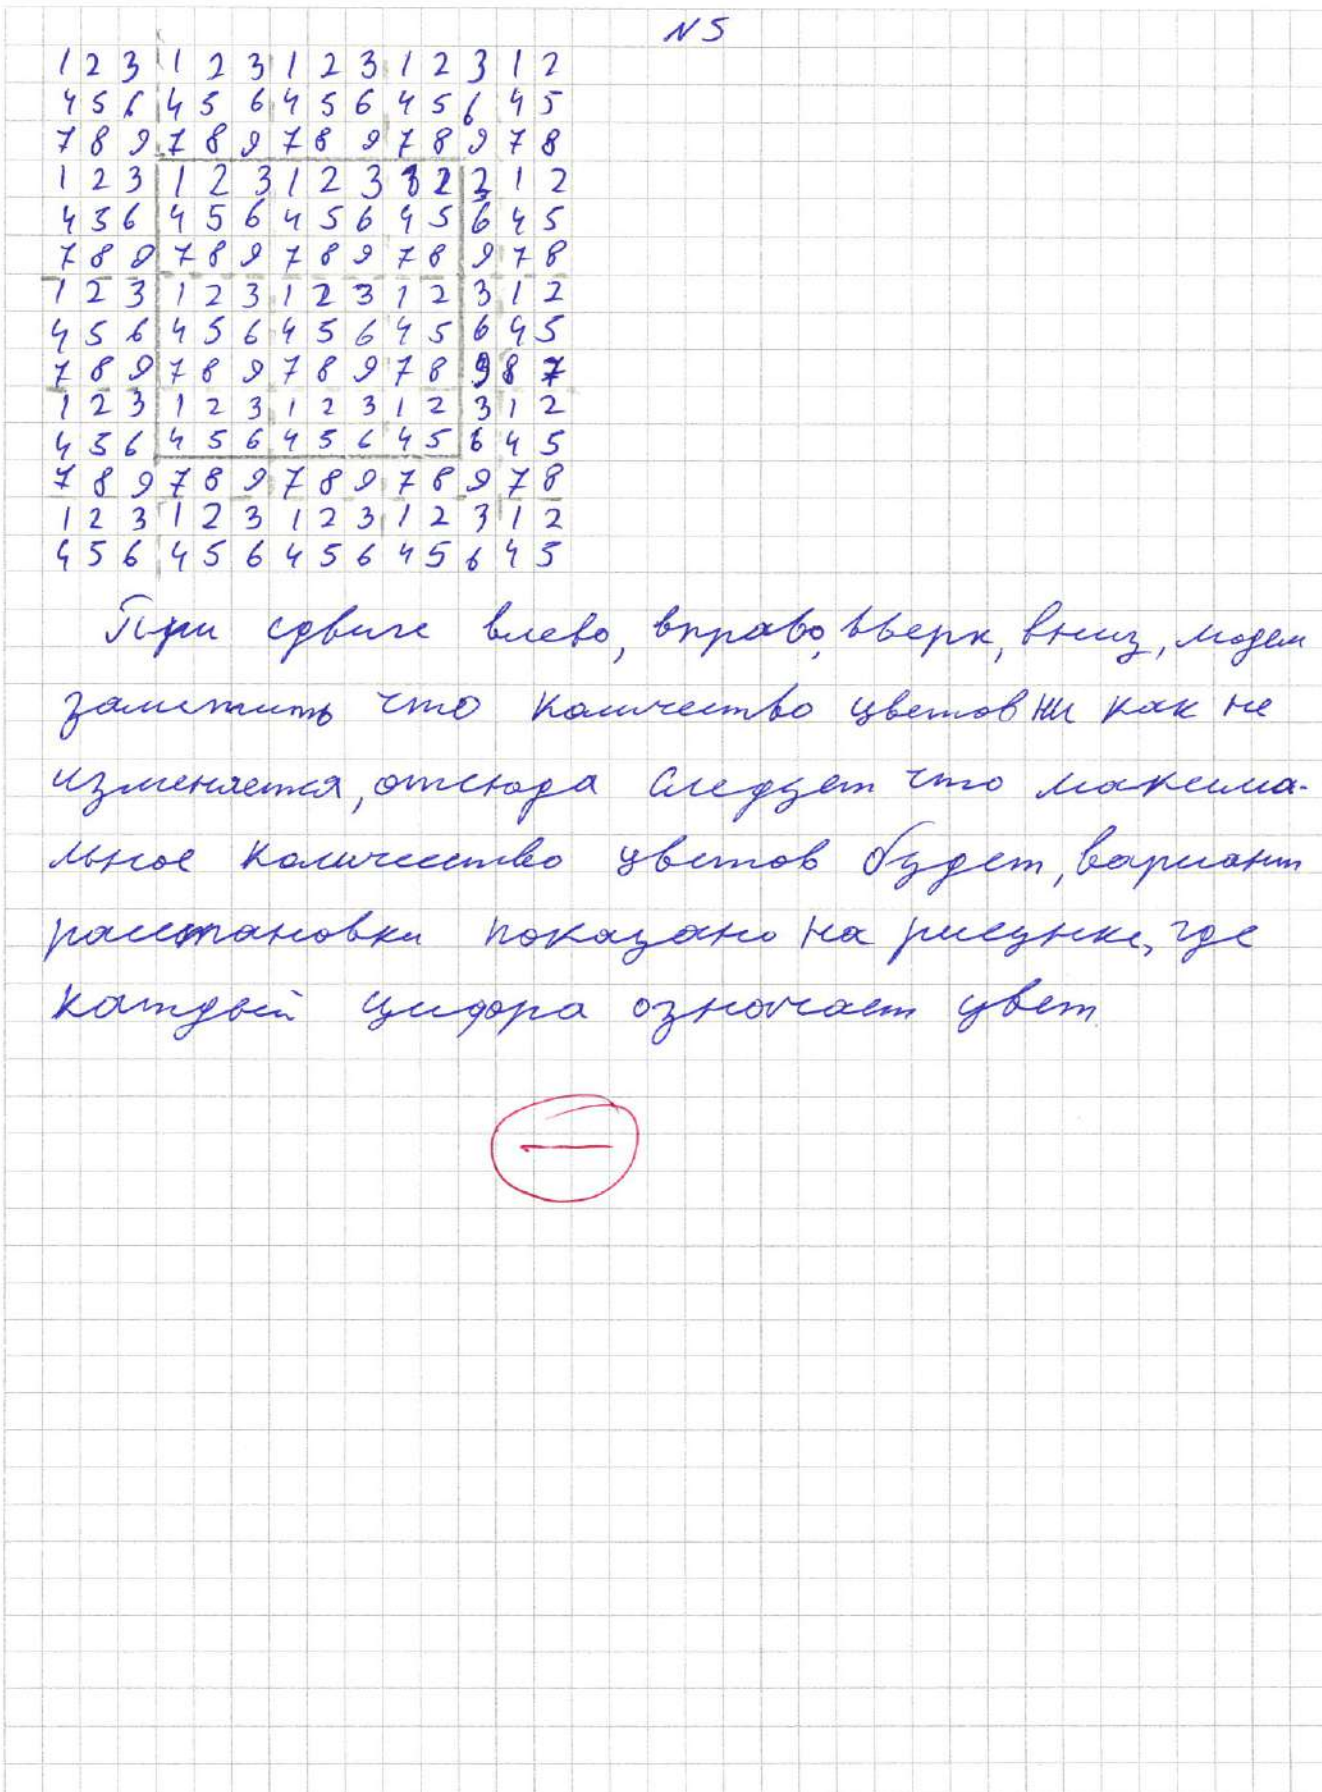 N5
1 2 3 1 2 3 1 2 3 1 2 3 1 2
4 5 6 4 5 6 4 5 6 4 5 6 4 5
7 8 9 7 8 9 7 8 9 7 8 9 7 8
1 2 3 1 2 3 1 2 3 1 2 3 1 2
4 5 6 4 5 6 4 5 6 4 5 6 4 5
7 8 9 7 8 9 7 8 9 7 8 9 7 8
1 2 3 1 2 3 1 2 3 1 2 3 1 2
4 5 6 4 5 6 4 5 6 4 5 6 4 5
7 8 9 7 8 9 7 8 9 7 8 9 8 7
1 2 3 1 2 3 1 2 3 1 2 3 1 2
4 5 6 4 5 6 4 5 6 4 5 6 4 5
7 8 9 7 8 9 7 8 9 7 8 9 7 8
1 2 3 1 2 3 1 2 3 1 2 3 1 2
4 5 6 4 5 6 4 5 6 4 5 6 4 5
При сдвиге влево, вправо, вверх, вниз, можем
заметить что количество цветов ни как не
изменяется, отсюда следует что максима-
льное количество цветов будет, вариант
расстановки показано на рисунке, где
каждый цифра означает цвет